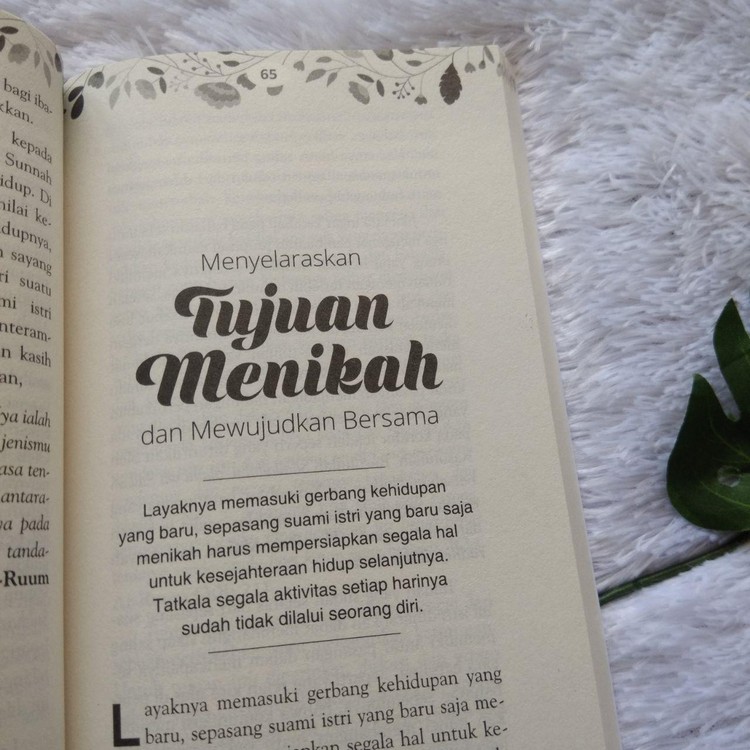 bagi iba-
kkan.
kepada
Sunnah
idup. Di
nilai ke-
dupnya,
sayang
ri suatu
mi istri
nteram-
n kasih
an,
ya ialah
jenismu
asa ten-
antara-
a pada
tanda-
-Ruum
65
Menyelaraskan
Tujuan
Menikah
dan Mewujudkan Bersama
Layaknya memasuki gerbang kehidupan
yang baru, sepasang suami istri yang baru saja
menikah harus mempersiapkan segala hal
untuk kesejahteraan hidup selanjutnya.
Tatkala segala aktivitas setiap harinya
sudah tidak dilalui seorang diri.
Layaknya memasuki gerbang kehidupan yang
baru, sepasang suami istri yang baru saja me-
segala hal untuk ke-